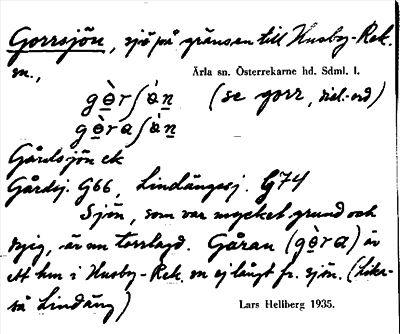 Gorrsjön, sjö på gränsen till Husby-Rek.
sn.,
Ärla sn. Österrekarne hd. Sdml. l.
gòrʃön (se gorr, riel.-ord)
gòraʃön
Gårdsjön ek
Gårdsj. G66, Lindängssj. G74
Sjön, som var mycket grund och
dyig, är nu torrlagd. Gåran (gòra) är
ett hm i Husby-Rek. sn ej långt fr. sjön. (Lika-
så Lindäng)
Lars Hellberg 1935.